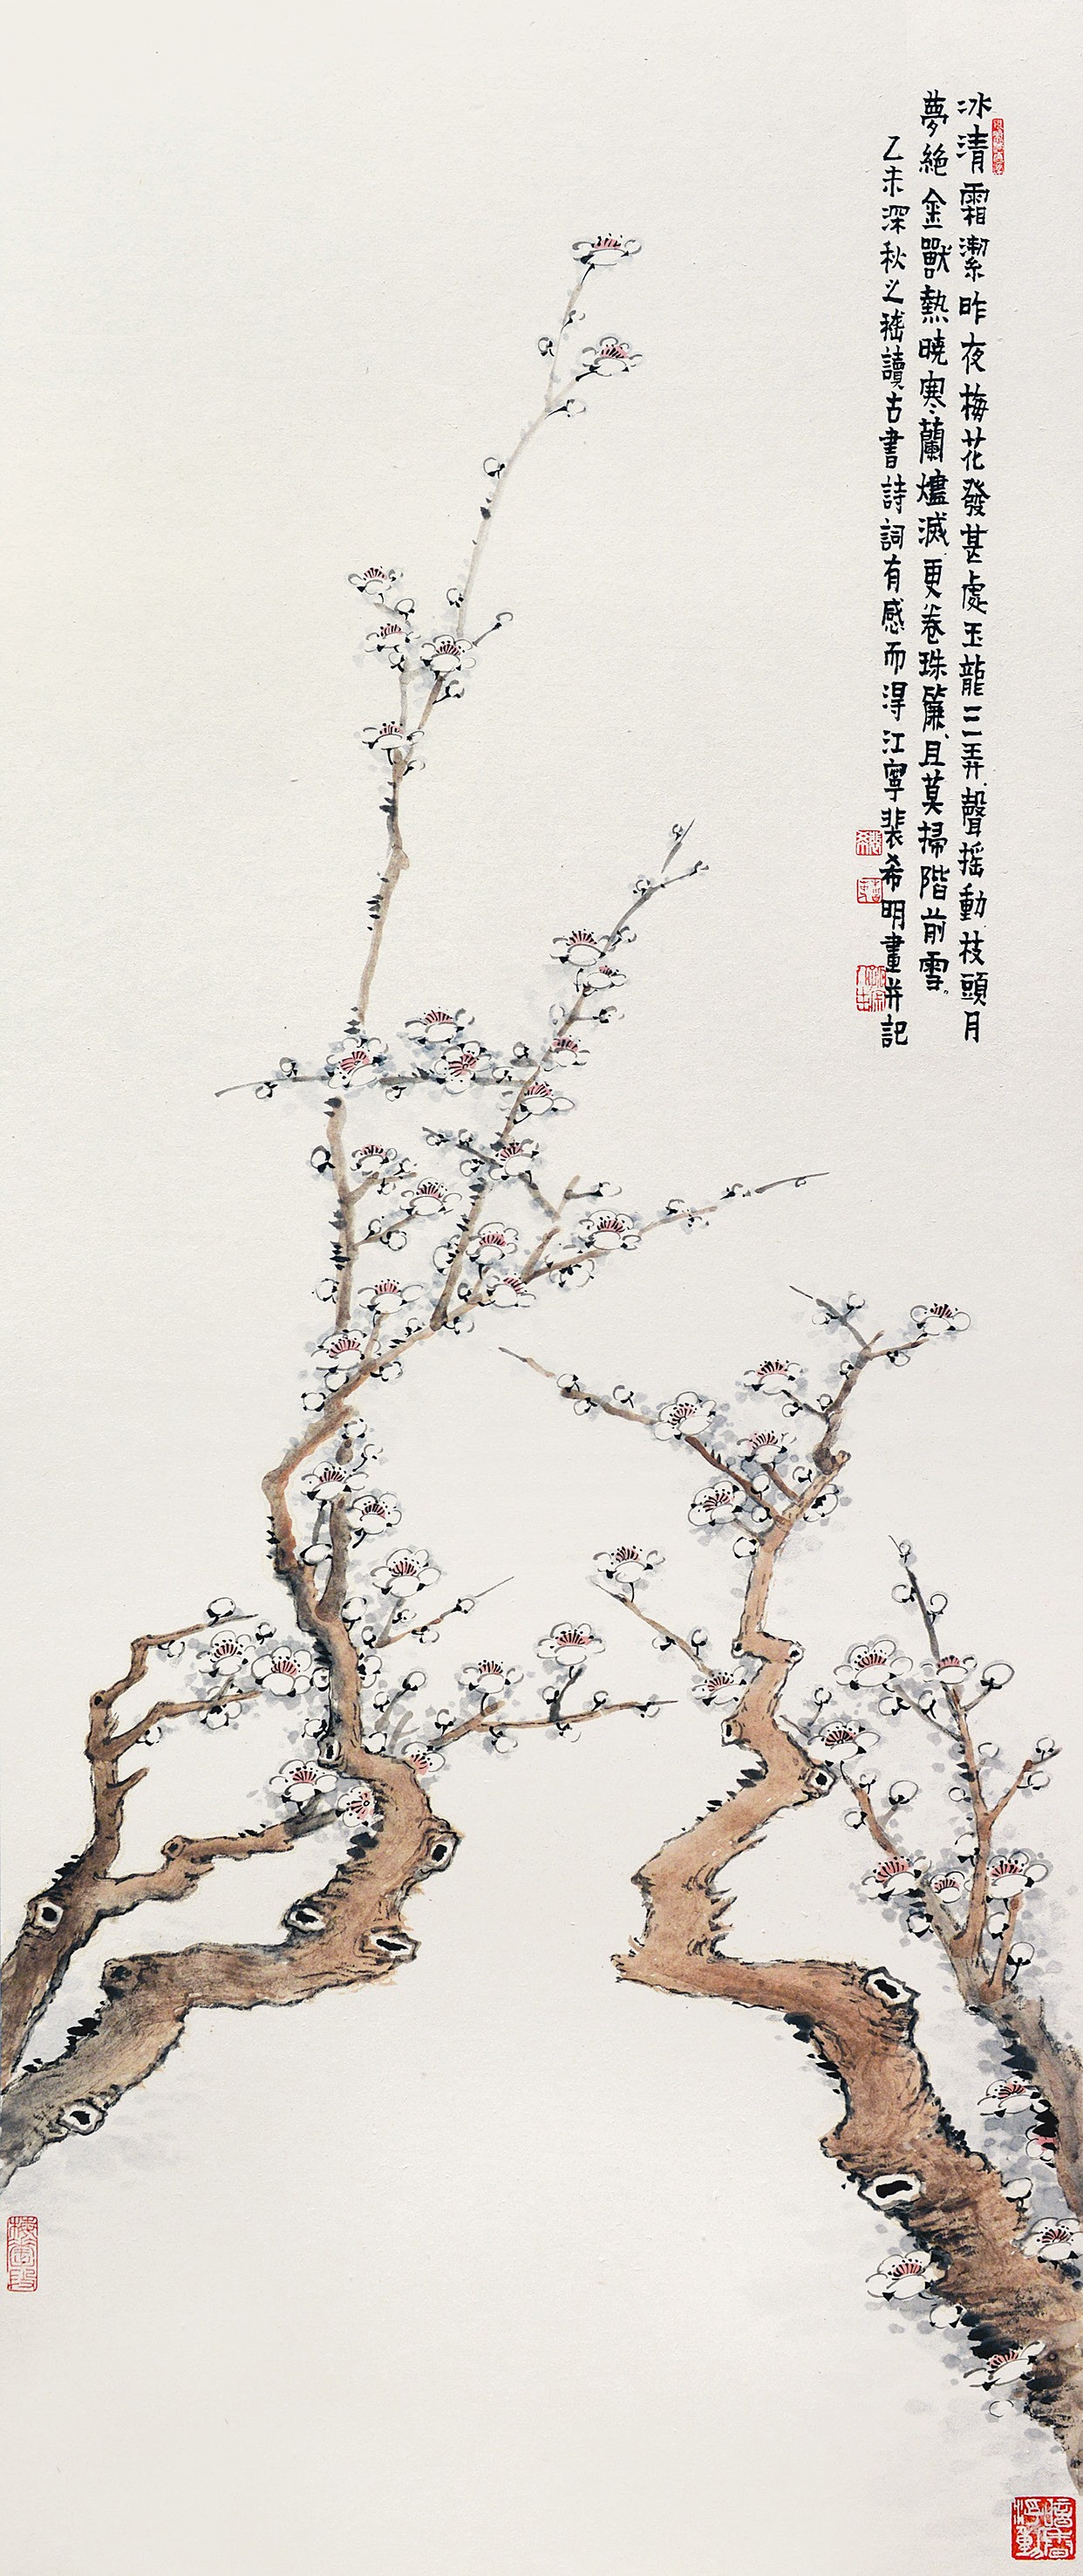 冰清霜潔昨夜梅花發甚處玉龍三弄聲摇動枝頭月
夢絕金獸熱曉寒蘭燼滅更卷珠簾且莫掃階前雪
乙未深秋之 讀古書詩詞有感而得江寧裴希明畫并記